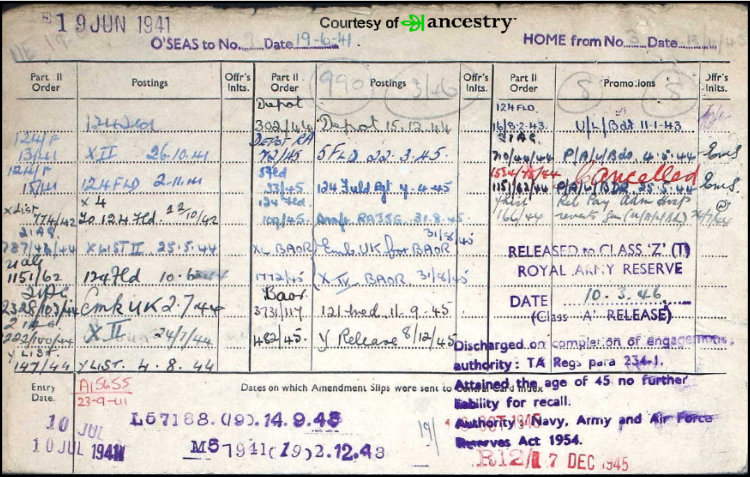 19 JUN 1941
Courtesy of ancestry
O'SEAS to No. Date 19-6-41
HOME from No. 3 Date
Part II Order
Postings
Offr's Inits.
Part II Order
Postings
Offr's Inits.
Part II Order
Promotions
Offr's Inits.
990
3/46
8
8
124 Fld
Depot
302/44 Depot 15.12.44
124 FLD.
16/8-2-43. U/L/Bdr 11-1-43
124/F
13/41 X II 26.10.41
DEPOT RA
72/45 5 FLD 22.3.45
21 AG.
P/A/L/Bdr 4.5.44
124/F
15/41 124 FLD 2.11.41
33/45 124 Fald Rgt 4.45
1534/75/44 Cancelled
115/62/44 P/A/L/Bdr 25.5.44
X List
774/42 X 4
To 124 Fld. 22/10/42
124 Fld
109/45 31.8.45
166/44
21 AG
787/43/44 X LIST II 25.5.44
XL BAOR Emb. UK for BAOR 31/8/45
RELEASED to CLASS 'Z' (T)
ROYAL ARMY RESERVE
1151/62 124 Fld 10.6
1772/45 X IV BAOR 31/8/45
DATE 10.3.46
(Class A' RELEASE)
2328/103/44 Emb UK 2.7.44
Baor
3731/117 121 Med. 11.9.45
222/100/44 X II 24/7/44
482/45. Y Release 8/12/45
Y LIST
147/44 Y LIST. 4.8.44
Discharged on completion of engagements,
authority: TA Regs para 234.1.
Attained the age of 45 no further
liability for recall.
Authority: Navy, Army and Air Force
Reserves Act 1954.
Entry Date.
A15655
23-9-41
Dates on which Amendment Slips were sent to Central Card Index
10 JUL
10 JUL 1941
L57188.(19).14.9.43
M57941(19)2.12.43
19/
R12/17 DEC 1945